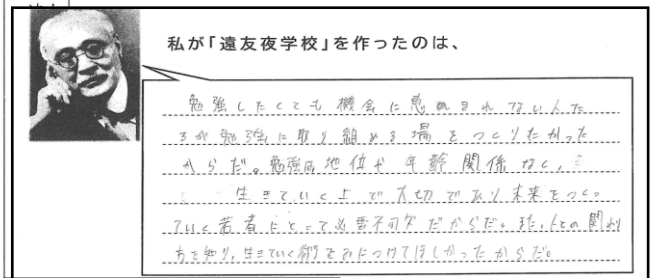 私が「遠友夜学校」を作ったのは、
勉強したくても機会に恵まれてない人た
ちが勉強に取り組める場をつくりたかった
からだ。勉強は地位や年齢関係なく、
生きていく上で大切であり未来をつくっ
ていく若者にとって必要不可欠だからだ。また、人との関わり
方を知り、生きていく術をみにつけてほしかったからだ。